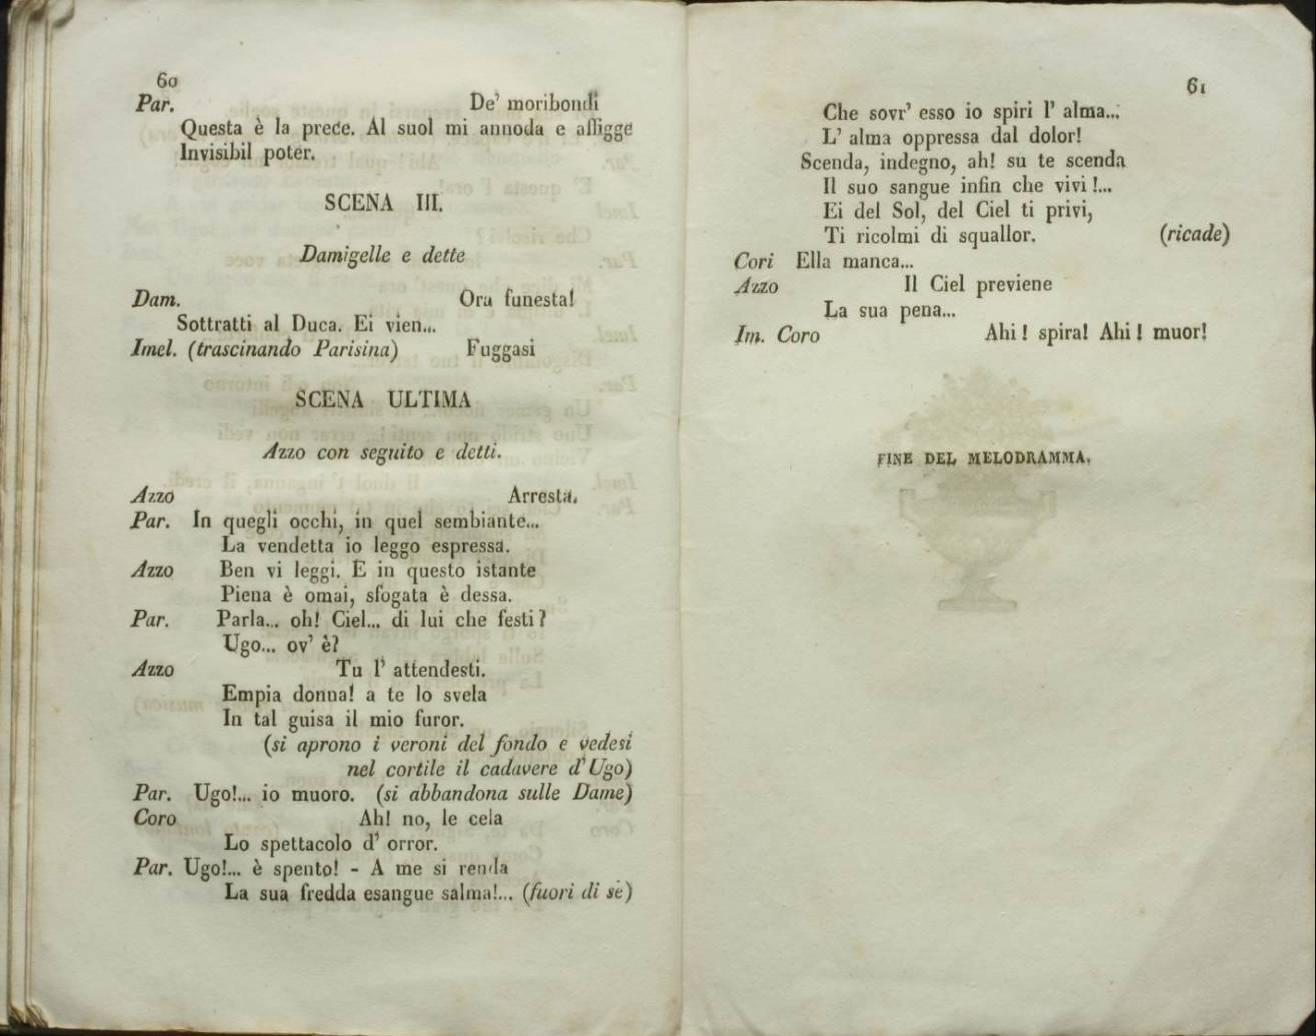 60
Par. De' moribondi
Questa è la prece. Al suol mi annoda e affigge
Invisibil poter.
SCENA III.
Damigelle e dette
Dam. Ora funesta!
Sottratti al Duca. Ei vien...
Imel. (trascinando Parisina) Fuggasi
SCENA ULTIMA
Azzo con seguito e detti.
Azzo Arresta.
Par. In quegli occhi, in quel sembiante...
La vendetta io leggo espressa.
Azzo Ben vi leggi. E in questo istante
Piena è omai, sfogata è dessa.
Par. Parla... oh! Ciel... di lui che festi?
Ugo... ov' è?
Azzo Tu l' attendesti.
Empia donna! a te lo svela
In tal guisa il mio furor.
(si aprono i veroni del fondo e vedesi
nel cortile il cadavere d'Ugo)
Par. Ugo!... io muoro. (si abbandona sulle Dame)
Coro Ah! no, le cela
Lo spettacolo d' orror.
Par. Ugo!... è spento! - A me si renda
La sua fredda esangue salma!... (fuori di sè)
61
Che sovr' esso io spiri l' alma...
L' alma oppressa dal dolor!
Scenda, indegno, ah! su te scenda
Il suo sangue infin che vivi!...
Ei del Sol, del Ciel ti privi,
Ti ricolmi di squallor. (ricade)
Cori Ella manca...
Azzo Il Ciel previene
La sua pena...
Im. Coro Ahi! spira! Ahi! muor!
FINE DEL MELODRAMMA.